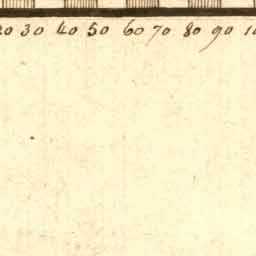 20 30 40 50 60 70 80 90 10